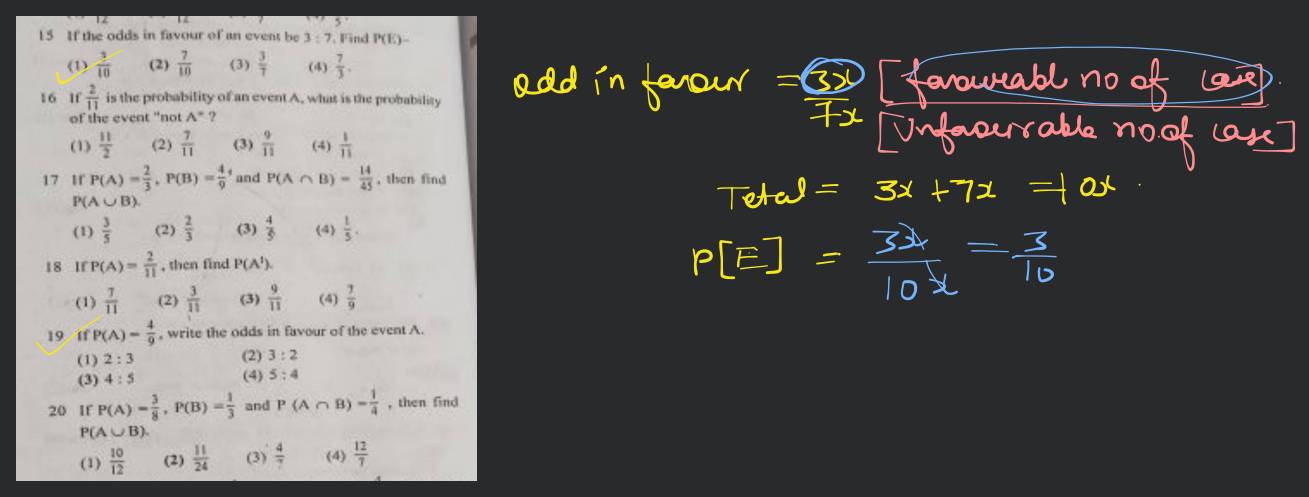 15 If the odds in favour of an event be 3 : 7. Find P(E)–
(1) 3/10 (2) 7/10 (3) 3/7 (4) 7/3.
16 If 2/11 is the probability of an event A, what is the probability
of the event "not A" ?
(1) 11/2 (2) 7/11 (3) 9/11 (4) 1/11
17 If P(A) = 2/3, P(B) = 4/9, and P(A ∩ B) = 14/45, then find
P(A ∪ B).
(1) 3/5 (2) 2/3 (3) 4/5 (4) 1/5.
18 If P(A) = 2/11, then find P(A').
(1) 7/11 (2) 3/11 (3) 9/11 (4) 7/9
19 If P(A) = 4/9, write the odds in favour of the event A.
(1) 2 : 3 (2) 3 : 2
(3) 4 : 5 (4) 5 : 4
20 If P(A) = 3/8, P(B) = 1/3 and P (A ∩ B) = 1/4, then find
P(A ∪ B).
(1) 10/12 (2) 11/24 (3) 4/7 (4) 12/7
odd in favour = 3x/7x [favoureabl no of case] / [Unfavourable no. of case]
Total = 3x + 7x = 10x.
P[E] = 3x/10x = 3/10